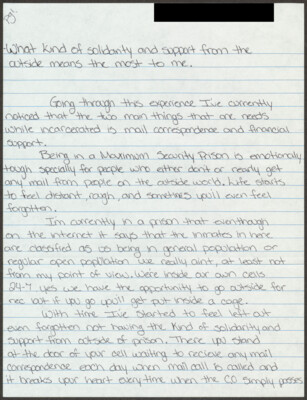 What kind of solidarity and support from the
outside means the most to me.
Going through this experience I've currently
noticed that the two main things that one needs
while incarcerated is mail correspondence and financial
support.
Being in a Maximum Security Prison is emotionaly
tough specially for people who either don't or nearly get
any mail from people on the outside world. Life starts
to feel distant, rough, and sometimes you'll even feel
forgotten.
I'm currently in a prison that eventhough
on the internet it says that the inmates in here
are classified as as being in general population or
regular open population we really aint, at least not
from my point of view. Were inside our own cells
24-7 yes we have the opportunity to go outside for
rec but if you go you'll get put inside a cage.
With time I've started to feel left out
even forgotten not having the kind of solidarity and
support from outside of prison. There you stand
at the door of your cell waiting to recieve any mail
correspondence each day when mail call is called and
it breaks your heart everytime when the CO simply passes